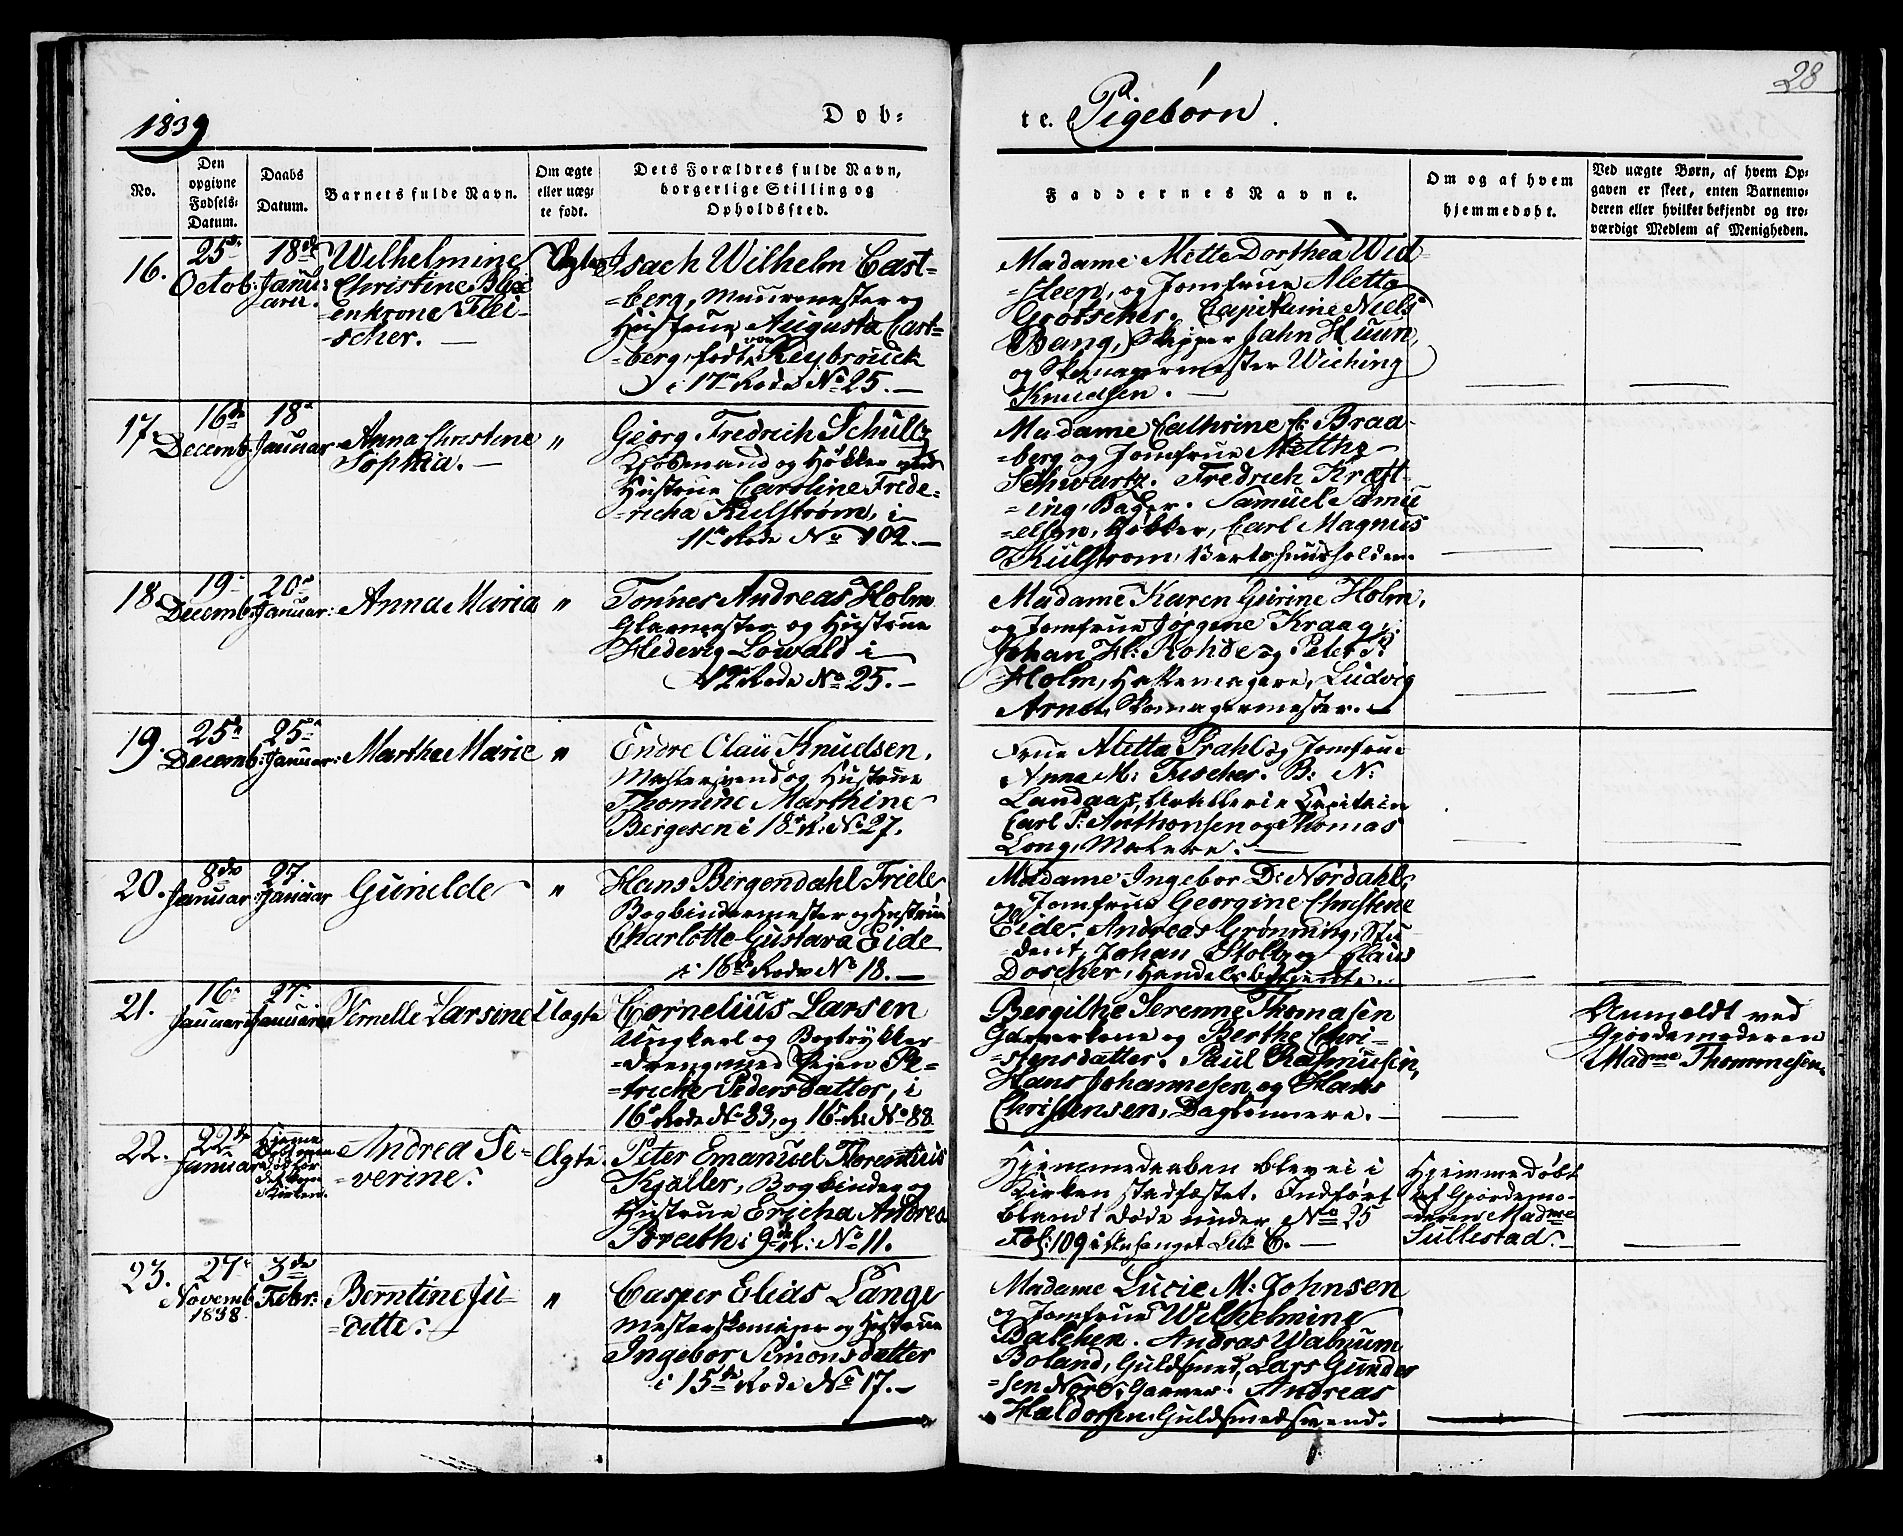 28
1839
Døb-
te. Pigebørn.
No.
Den opgivne Fødsels-Datum.
Daabs Datum.
Barnets fulde Navn.
Om ægte eller uæg-te født.
Dets Forældres fulde Navn, borgerlige Stilling og Opholdssted.
Faddernes Navne.
Om og af hvem hjemmedøbt.
Ved uægte Børn, af hvem Op-
gaven er skeet, enten Barnemo-
deren eller hvilket bekjendt og tro-
værdigt Medlem af Menigheden.
16.
25de Octob:
18de Janu-arii.
Wilhelmine
Christine
=enkrone Flei-
-scher. —
Ægte
Isach Wilhelm Cast=
=berg, Muurmester og
Hustrue Augusta Cast=
=berg, født von Reybrouck
i 17de Rode No 25. —
Madame Mette Dorthea Wid=
=steen, og Jomfrue Aletta
Grosscher. Capitaine Niels
Bang, Skipper Jahn Huun,
og Skomagermester Wiching
Knudsen.
17.
16de Decemb:
18de Januar
Anna Christine
Sophia. —
"
Georg Fredrich Schultz
Kjøbmand og Høkker med
Hustrue Caroline Frede-
=richa Kulstrøm, i
11te Rode No 102. —
Madame Cathrine f: Braa-
=berg og Jomfrue Metthe
Schwartz. Fredrich Kraft-
=ing, Bager. Samuel Samu
=elsen, Høkker, Carl Magnus
Kulstrøm, Vertshuusholder.
18.
19de Decemb:
20de Januar:
Anna Maria
"
Tønnes Andreas Holm
Glarmester og Hustrue
Hedevig Lowald i
12te Rode No 25. —
Madame Karen Gurine Holm,
og Jomfrue Jørgine Kraag,
Johan H: Rohde og Peter P:
Holm, Hattemagere, Ludvig
Arne, Skomagermester. —
19.
25de Decemb:
25de Januar:
Martha Marie
"
Endre Claü Knudsen,
Malersvend og Hustrue
Thomine Marthine
Bergesen i 18de R: No 27.
Frue Aletta Prahl og Jomfrue
Anne M: Fischer. B: N:
Landaas, Artillerie Capitain
Carl P: Anthonsen og Thomas
Long, Malere. —
20.
8de Januar:
27 Januar
Gunilde
"
Hans Bergendahl Friele
Bogbindermester og Hustrue
Charlotte Gustava Eide
i 16de Rode No 18. —
Madame Ingebor D: Nordahl,
og Jomfrue Georgine Christine
Eide. Andreas Grønning, Stu
=dent, Johan Stolt og Claus
Doscher, Handelsbetjente.
21.
16de Januarii
27de Januarii
Pernelle Larsine
Uægte
Cornelius Larsen
Ungkarl og Bogtrykker-
=dreng, med Pigen Pe-
=triche Pedersdatter, i
16de Rode No 83, og 16de R: No 88
Bergithe Serenne Thomasen
Garverkone og Berthe Chri-
=stensdatter. Paul Rasmussen,
Hans Johannesen og Mads
Christensen, Dagløhnere. —
Anmeldt ved
Gjordemoderen
Madme Thommesen.
22.
22de Januar
Hjemme
Kirken.
Andrea Se-
=verine.
Ægte
Peter Emanuel Florentius
Kjøller, Bogbinder og
Hustrue Ericha Andrea
Breith i 9de R: No 11.
Hjemmedaaben blev ei i
Kirken stadfæstet. Indført
blandt døde under No 25
Fol: 109
Hjemmedøbt
af Gjordemo-
=deren Madme
Tullestad.
23.
27de Novemb 1838.
3de Febr:
Berntine Ju-
=ditte.
"
Casper Elias Lange
Mesterskomager og Hustrue
Ingebor Simonsdatter
i 15de Rode No 17. —
Madame Lucie M: Johnsen
og Jomfrue Wilhelmine
Balchen. Andreas Walnum
Boland, Guldsmed, Lars Gunder
=sen Nore, Garver. Andreas
Haldorsen, Guldsmedsvend.